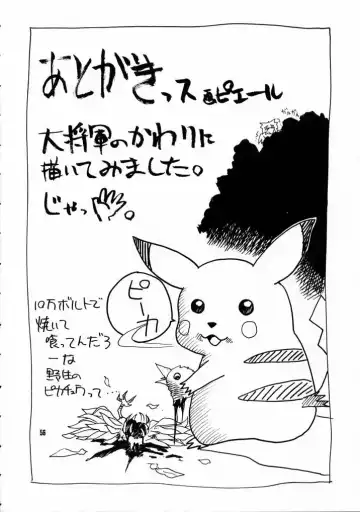 あとがきっス 画ピエール
大将軍のかわりに
描いてみました。
じゃっ
ピーカ
10万ボルトで
焼いて
喰ってんだろ
ーな
野生の
ピカチュウって…
56